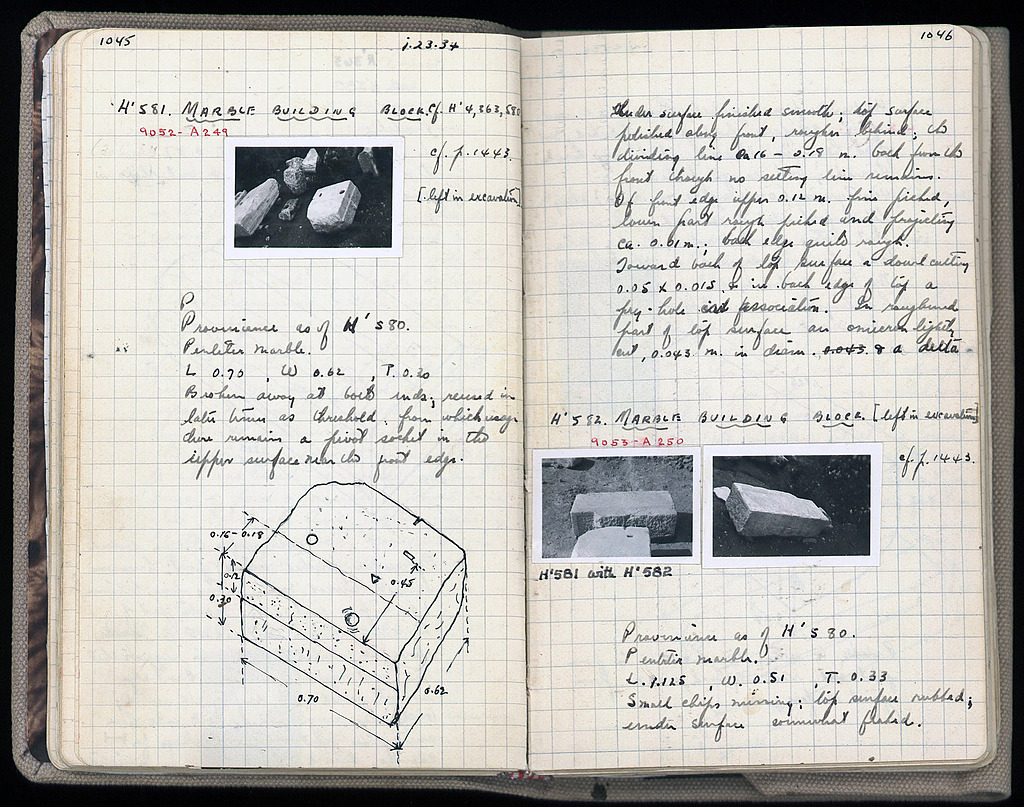 1045
1.23.34
H'581. MARBLE BUILDING BLOCK. Cf. H'4, 363, 580
9052-A249
cf. p. 1443.
[left in excavation]
P
Provenience as of H'580.
Pentelic marble.
L 0.70, W 0.62, T. 0.30
Broken away at both ends; reused in
later times as threshold, from which usage
there remains a pivot socket in the
upper surface near the front edge.
0.16-0.18
0.12
0.30
0.45
0.70
0.62
1046
Under surface finished smooth; top surface
polished along front, rougher behind; the
dividing line ca 16 - 0.18 m. back from the
front though no setting line remains.
Of front edge upper 0.12 m. fine picked,
lower part rough picked and projecting
ca. 0.01 m.; back edge quite rough.
Toward back of top surface a dowel cutting
0.05 x 0.015, & in back edge of top a
pry-hole in association. In roughened
part of top surface an omicron lightly
cut, 0.043 m. in diam. 0.043 & a delta
H'582. MARBLE BUILDING BLOCK. [left in excavation]
9053-A250
cf. p. 1443.
H'581 with H'582
Provenience as of H'580.
Pentelic marble.
L. 1.125, W. 0.51, T. 0.33
Small chips missing; top surface rubbed;
under surface somewhat flaked.